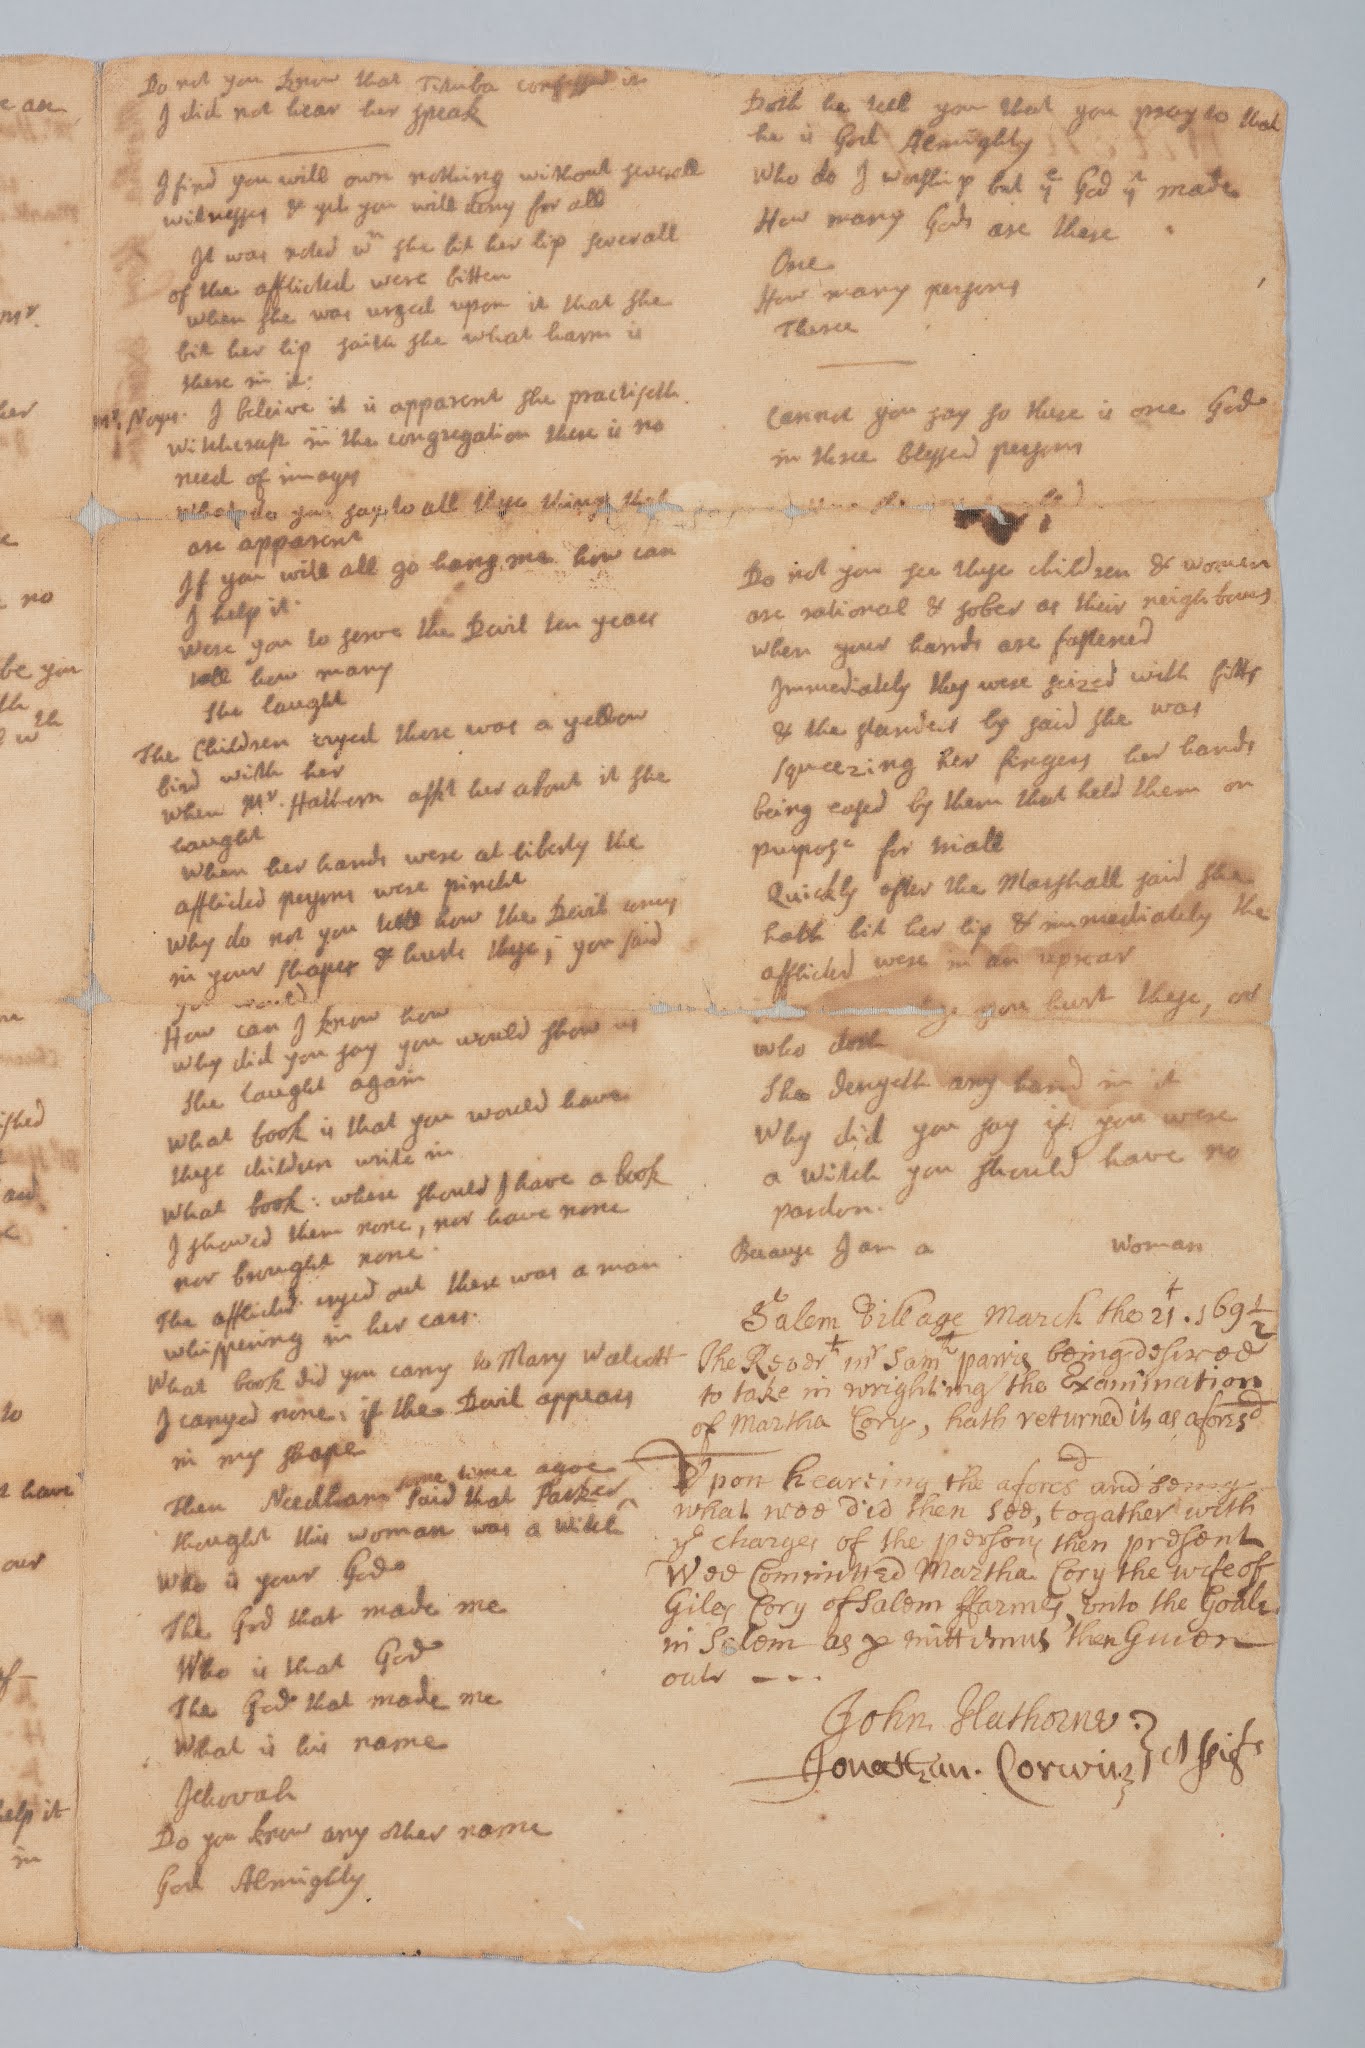 Do not you know that Tituba confessed it
I did not hear her speak
I find you will own nothing without severall
witnesses & yet you will deny for all
It was noted wn she bit her lip severall
of the afflicted were bitten
when she was urged upon it that she
bit her lip saith she what harm is
there in it:
Mr Noyes. I beleive it is apparent she practiseth
witchcraft in the congregation there is no
need of images
What do you say to all these things that
are apparent
If you will all go hang me how can
I help it.
Were you to serve the Devil ten years
tell how many
She laught
The Children cryed there was a yellow
bird with her
When Mr. Hathorn askt her about it she
laught
When her hands were at liberty the
afflicted persons were pincht
Why do not you tell how the Devil comes
in your shapes & hurts these, you said
you would
How can I know how
Why did you say you would show us
She laught again
What book is that you would have
these children write in
What book: where should I have a book
I showed them none, nor have none
nor brought none.
The afflicted cryed out there was a man
whispering in her ears.
What book did you carry to Mary Walcott
I carryed none: if the Devil appears
in my shape
Then Needham some time agoe
said that Parker
thought this woman was a Witch
Who is your God
The God that made me
Who is that God
The God that made me
What is his name
Jehovah
Do you know any other name
God Almighty
Doth he tell you that you pray to that
he is God Almighty
Who do I worship but ye God yt made
How many Gods are there
One
How many persons
Three
Cannot you say so there is one God
in three blessed persons
Do not you see these children & women
are rational & sober as their neighbours
when your hands are fastened
Immediately they were seized with fitts
& the standers by said she was
squeezing her fingers her hands
being eased by them that held them on
purpose for triall
Quickly after the Marshall said she
hath bit her lip & immediately the
afflicted were in an uproar
you hurt these, or
who doth
She denyeth any hand in it
Why did you say if you were
a Witch you should have no
pardon.
Because I am a woman
Salem Village March the 21t. 169½
The Revert mr Samll parris being desired
to take in wrighting the Examination
of Martha Cory, hath returned it as aforesd
Upon hearing the aforesd and seing
what wee did then see, togather with
ye charges of the persons then present
Wee Committed Martha Cory the wife of
Giles Cory of Salem ffarmes, unto the Goale
in Salem as p mittimus then Given
out ---
John Hathorne
Jonathan. Corwin } Assists